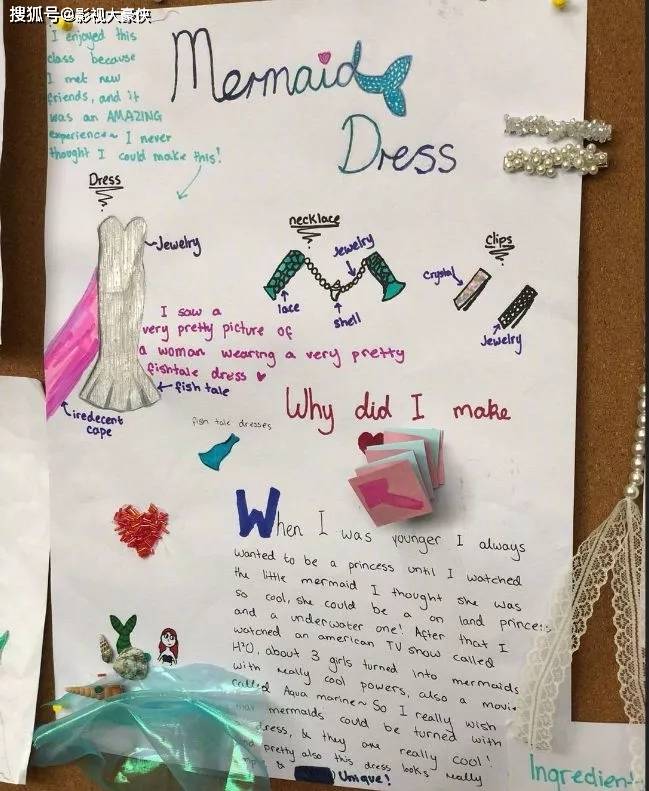 搜狐号@影视大豪侠
I enjoyed this
class because
I met new
friends, and it
was an AMAZING
experience~ I never
thought I could make this!
Mermaid
Dress
Dress
Jewelry
fish tale
iredecent
cape
necklace
Jewelry
lace
shell
Clips
Crystal
Jewelry
I saw a
very pretty picture of
a woman wearing a very pretty
fishtale dress
Why did I make
fish tale dresses
When I was younger I always
wanted to be a princess until I watched
the little mermaid I thought she was
so cool, she could be a on land princess
and a underwater one! After that I
watched an american TV show called
H²O, about 3 girls turned into mermaids
with really cool powers, also a movie
called Aqua marine~ So I really wish
that mermaids could be turned with
dress, & they are really cool!
pretty also this dress looks really
& Unique!
Ingredien